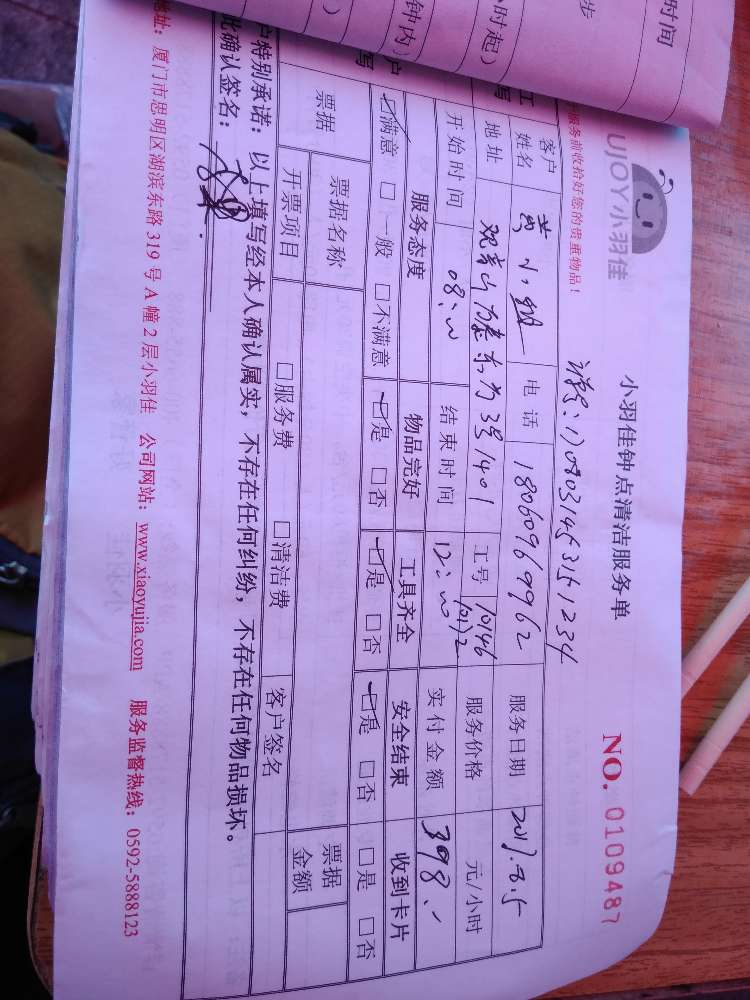 UJOY小羽佳
小羽佳钟点清洁服务单
NO. 0109487
服务前收拾好您的贵重物品！
170803145351234
客户姓名 黄小 电话 18060969962 服务日期 2017.8.5
地址 观音山 3号1401 工号 10146 服务价格 元/小时
开始时间 08:00 结束时间 12:00 实付金额 398.
服务态度 物品完好 工具齐全 安全结束 收到卡片
☑满意 □一般 □不满意 ☑是 □否 ☑是 □否 ☑是 □否 □是 □否
票据 票据名称 票据金额
开票项目 □服务费 □清洁费 客户签名
户特别承诺：以上填写经本人确认属实，不存在任何纠纷，不存在任何物品损坏。
此确认签名：
地址：厦门市思明区湖滨东路 319 号 A 幢 2 层小羽佳 公司网站：www.xiaoyujia.com 服务监督热线：0592-5888123
时间
步
小时起）
钟内）